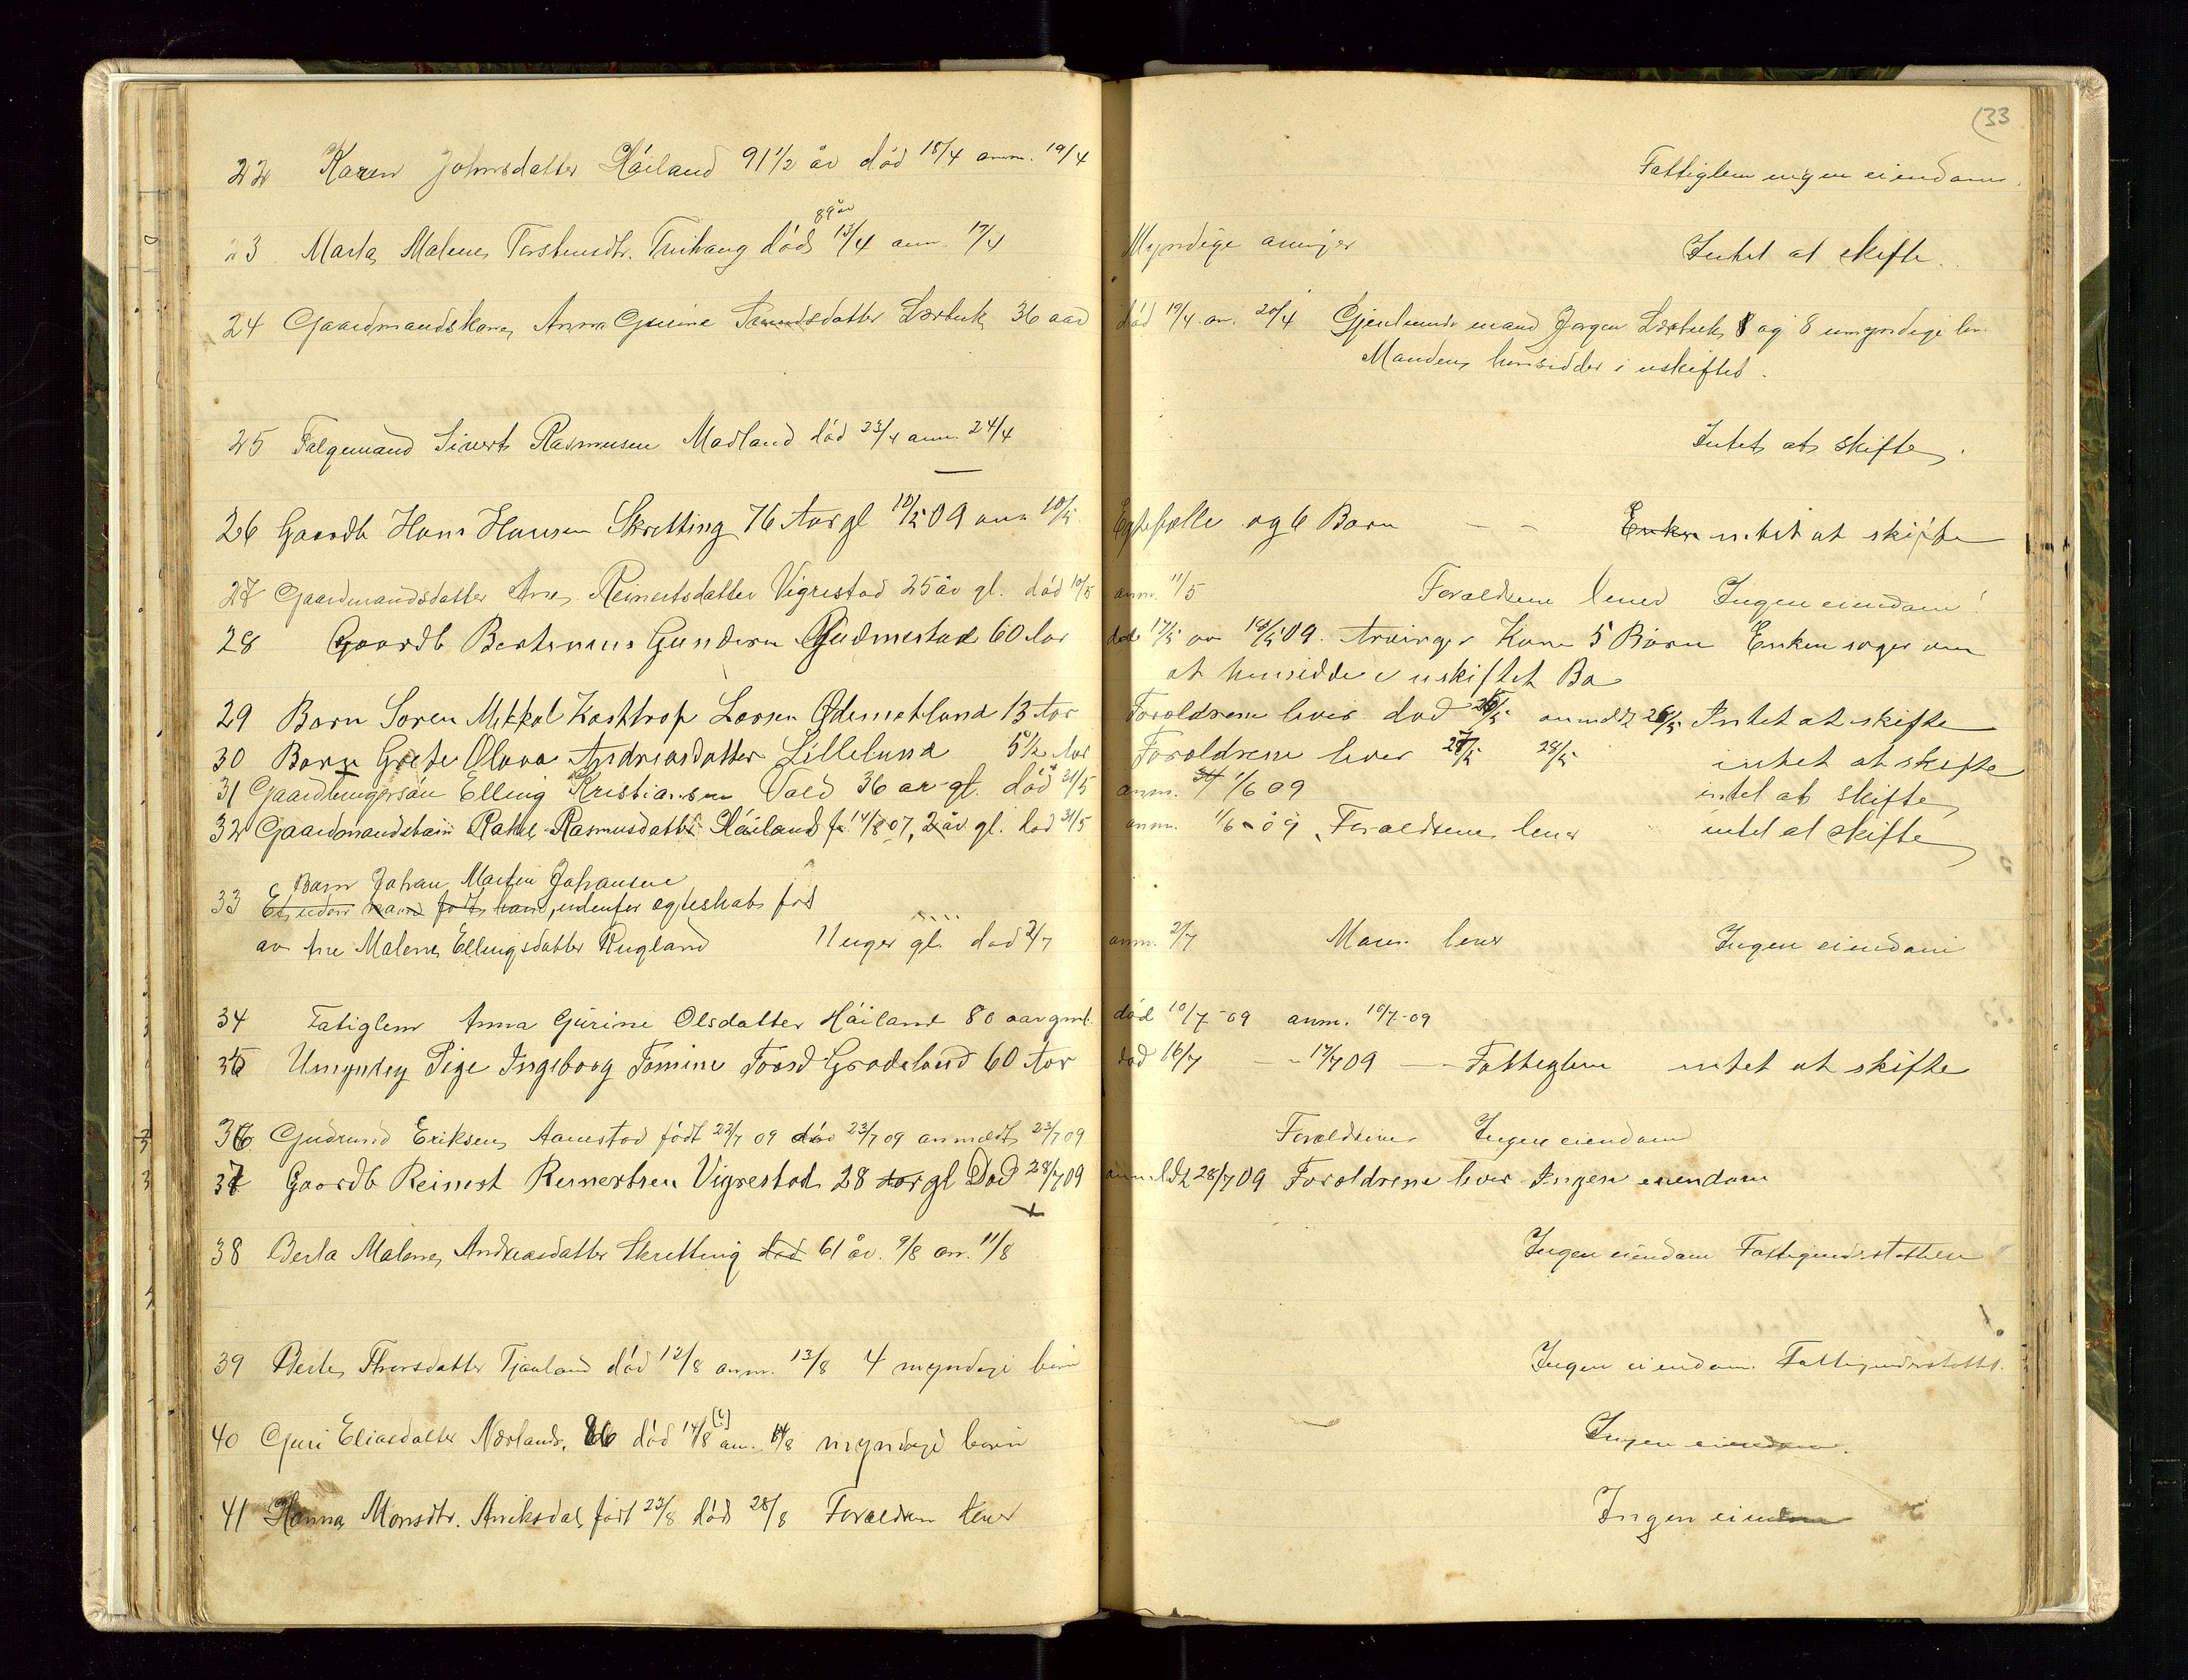 (33
22 Karen Johnsdatter Håiland 91 1/2 år død 18/4 anm. 19/4 Fattiglem ingen eiendom.
89 år
23 Marta Malene Torstensdtr. død 13/4 anm. 17/4 Myndige arvinger Intet at skifte.
24 Gaardmandskone Anna Gurine datter 36 aar død 19/4 an. 20/4 mand Jørgen og 8 umyndige
Manden hensidder i uskiftet.
25 Sivert Rasmusen Madland død 23/4 anm. 24/4 Intet at skifte.
26 Gaardb Hans Hansen Skretting 76 Aar gl 10/5 09 anm 10/5. Egtefælle og 6 Børn - - Enken intet at skifte
27 Gaardmandsdatter Ane Reinertsdatter Vigrestad 25 år gl. død 10/5 anm. 11/5 Forældrene lever Ingen eiendom!
28 Gaardb Bertinius Gundersn Gudmestad 60 Aar død 17/5 an 18/5 09. Arvinger Kone 5 Børn Enken søger om
at hensidde i uskiftet Bo
29 Barn Søren Mikkal Kasttrop Larsen Ødemotland 13 Aar Forældrene lever død 26/5 anmeldt 26/5. Intet at skifte
30 Barn Grete Olava Andreasdatter Lillelund 5 1/2 Aar Forældrene lever 27/5 28/5 intet at skifte
31 Elling Kristiansen Vold 36 ar gl. død 31/5 anm. 1/6 09 intet at skifte
32 Gaardmandsbarn Rakel Rasmusdatter Håiland f. 14/8 07, 2 år gl. død 31/5 anm. 1/6 - 09, Forældrene lever intet at skifte
Barn Johan Martin Johansen
33 Et uden navn født barn, udenfor egteskab fød
av Ane Malene Ellingsdatter Rugland 11 uger gl. død 2/7 anm. 2/7 Moren lever Ingen eiendom
34 Fatiglem Anna Gurine Olsdatter Håiland 80 aar gml. død 10/7 - 09 anm. 10/7 - 09
35 Umyndig Pige Ingeborg Tomine Grødeland 60 Aar død 16/7 - 17/7 09 - Fattiglem intet at skifte
36 Gudrund Eriksen Aanestad født 22/7 09 død 23/7 09 anmeldt 23/7 09 Forældrene Ingen eiendom
37 Gaardb Reinert Reinertsen Vigrestad 28 Aar gl Død 28/7 09 anmeldt 28/7 09 Forældrene lever Ingen eiendom
38 Berta Malene Andreasdatter Skretting død 61 år. 9/8 an. 11/8 Ingen eiendom
39 Berte Thorsdatter Tjaaland død 12/8 anm. 13/8 4 myndige børn Ingen eiendom.
40 Guri Eliasdatter Nærland, 86 død 14/8 (?) an. 14/8 myndige børn Ingen eiendom.
41 Hanna Monsdtr. Aniksdal, født 23/8 død 28/8 Forældren lever Ingen eiendom